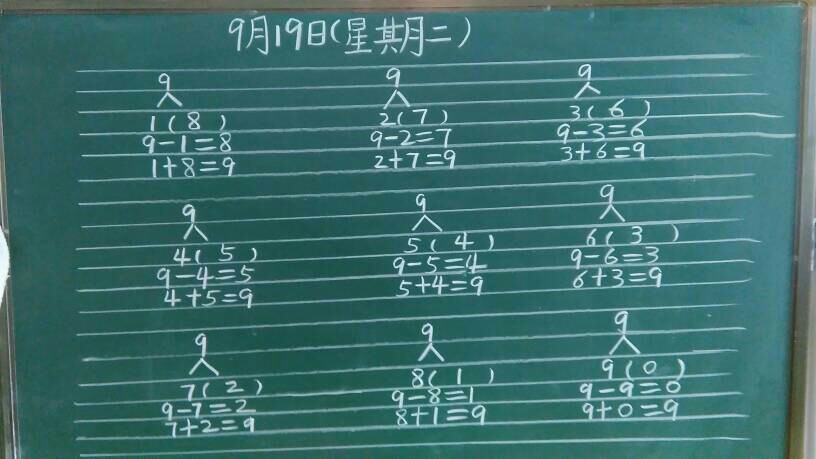 9月19日(星期二)
9 9 9
1(8) 2(7) 3(6)
9-1=8 9-2=7 9-3=6
1+8=9 2+7=9 3+6=9
9 9 9
4(5) 5(4) 6(3)
9-4=5 9-5=4 9-6=3
4+5=9 5+4=9 6+3=9
9 9 9
7(2) 8(1) 9(0)
9-7=2 9-8=1 9-9=0
7+2=9 8+1=9 9+0=9